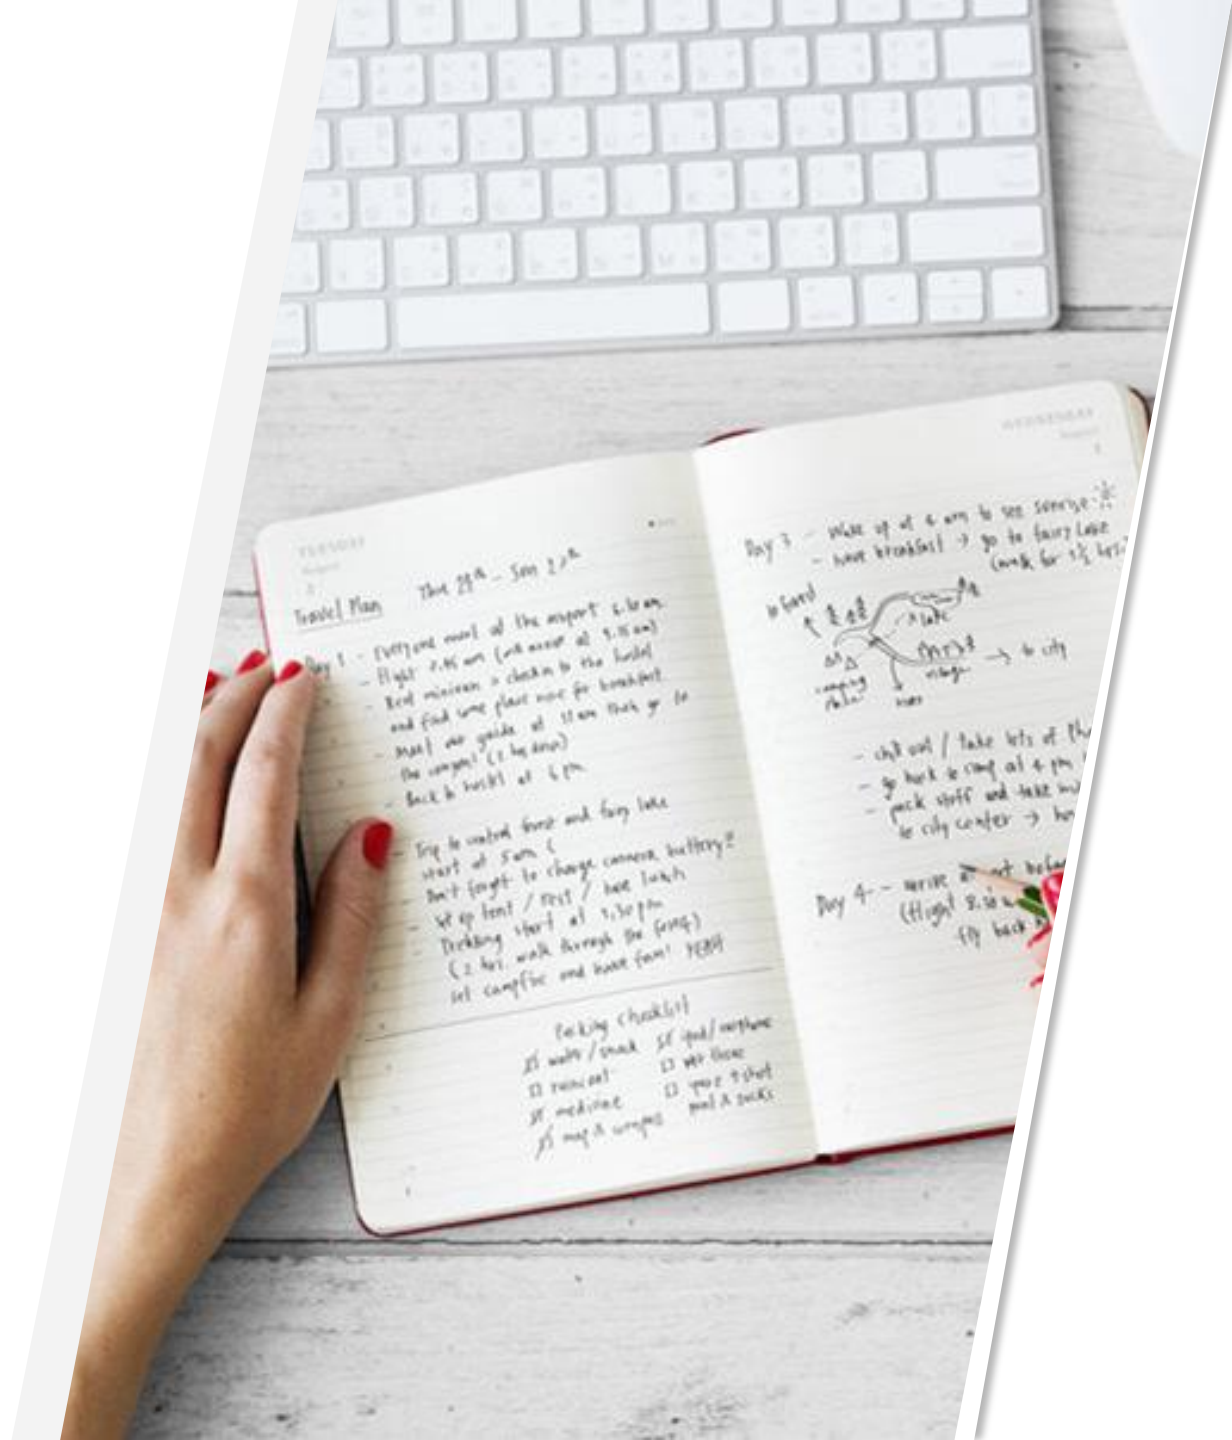 TUESDAY
August
Travel Plan
Day 1 - Everyone meet at the airport 6.10 am
- Flight 7.45 am (will arrive at 9.15 am)
- Rent minivan > check in to the hostel
and find some place nice for breakfast
- Meet our guide at 11 am then go to
the canyon! (2 hrs drive)
- Back to hostel at 6 pm
- Trip to central forest and fairy lake
start at 5 am
- Don't forget to charge camera battery!!
- Set up tent / rest / have lunch
- Trekking start at 3.30 pm
(2 hrs. walk through the forest)
- set campfire and have fun! YEAH
Packing checklist
water / snack
raincoat
medicine
map & compass
ipod / earphone
t-shirt
& socks
WEDNESDAY
August
Day 3 - Wake up at 4 am to see sunrise
- have breakfast → go to fairy Lake
(walk for 1½ hrs
to forest
lake
camping
place
river
village
→ to city
- chill out / take lots of
- go back to camp at 4 pm
- pack stuff and take
to city center →
Day 4 - arrive
(flight 8.30
fly back